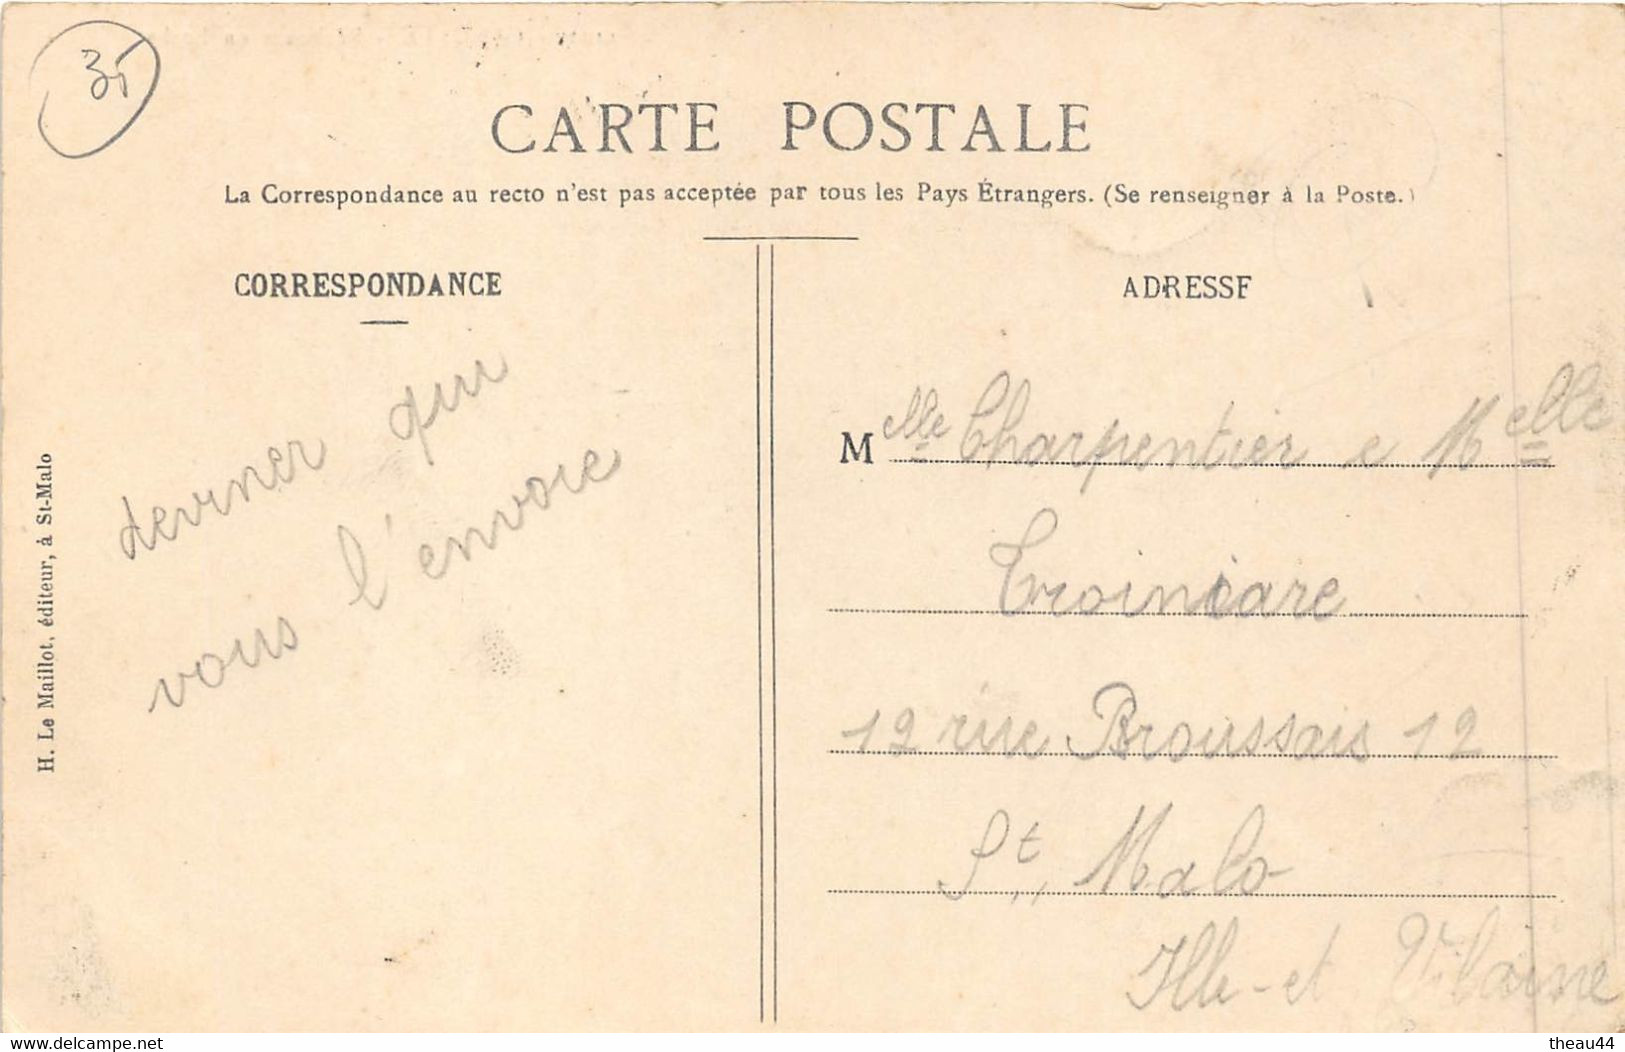 35
CARTE POSTALE
La Correspondance au recto n'est pas acceptée par tous les Pays Étrangers. (Se renseigner à la Poste.)
CORRESPONDANCE
deviner qui
vous l'envoie
H. Le Maillot, éditeur, à St-Malo
ADRESSE
Melle Charpentier e Melle
12 rue Broussais 12
St, Malo
Ille-et Vilaine
www.delcampe.net
theau44